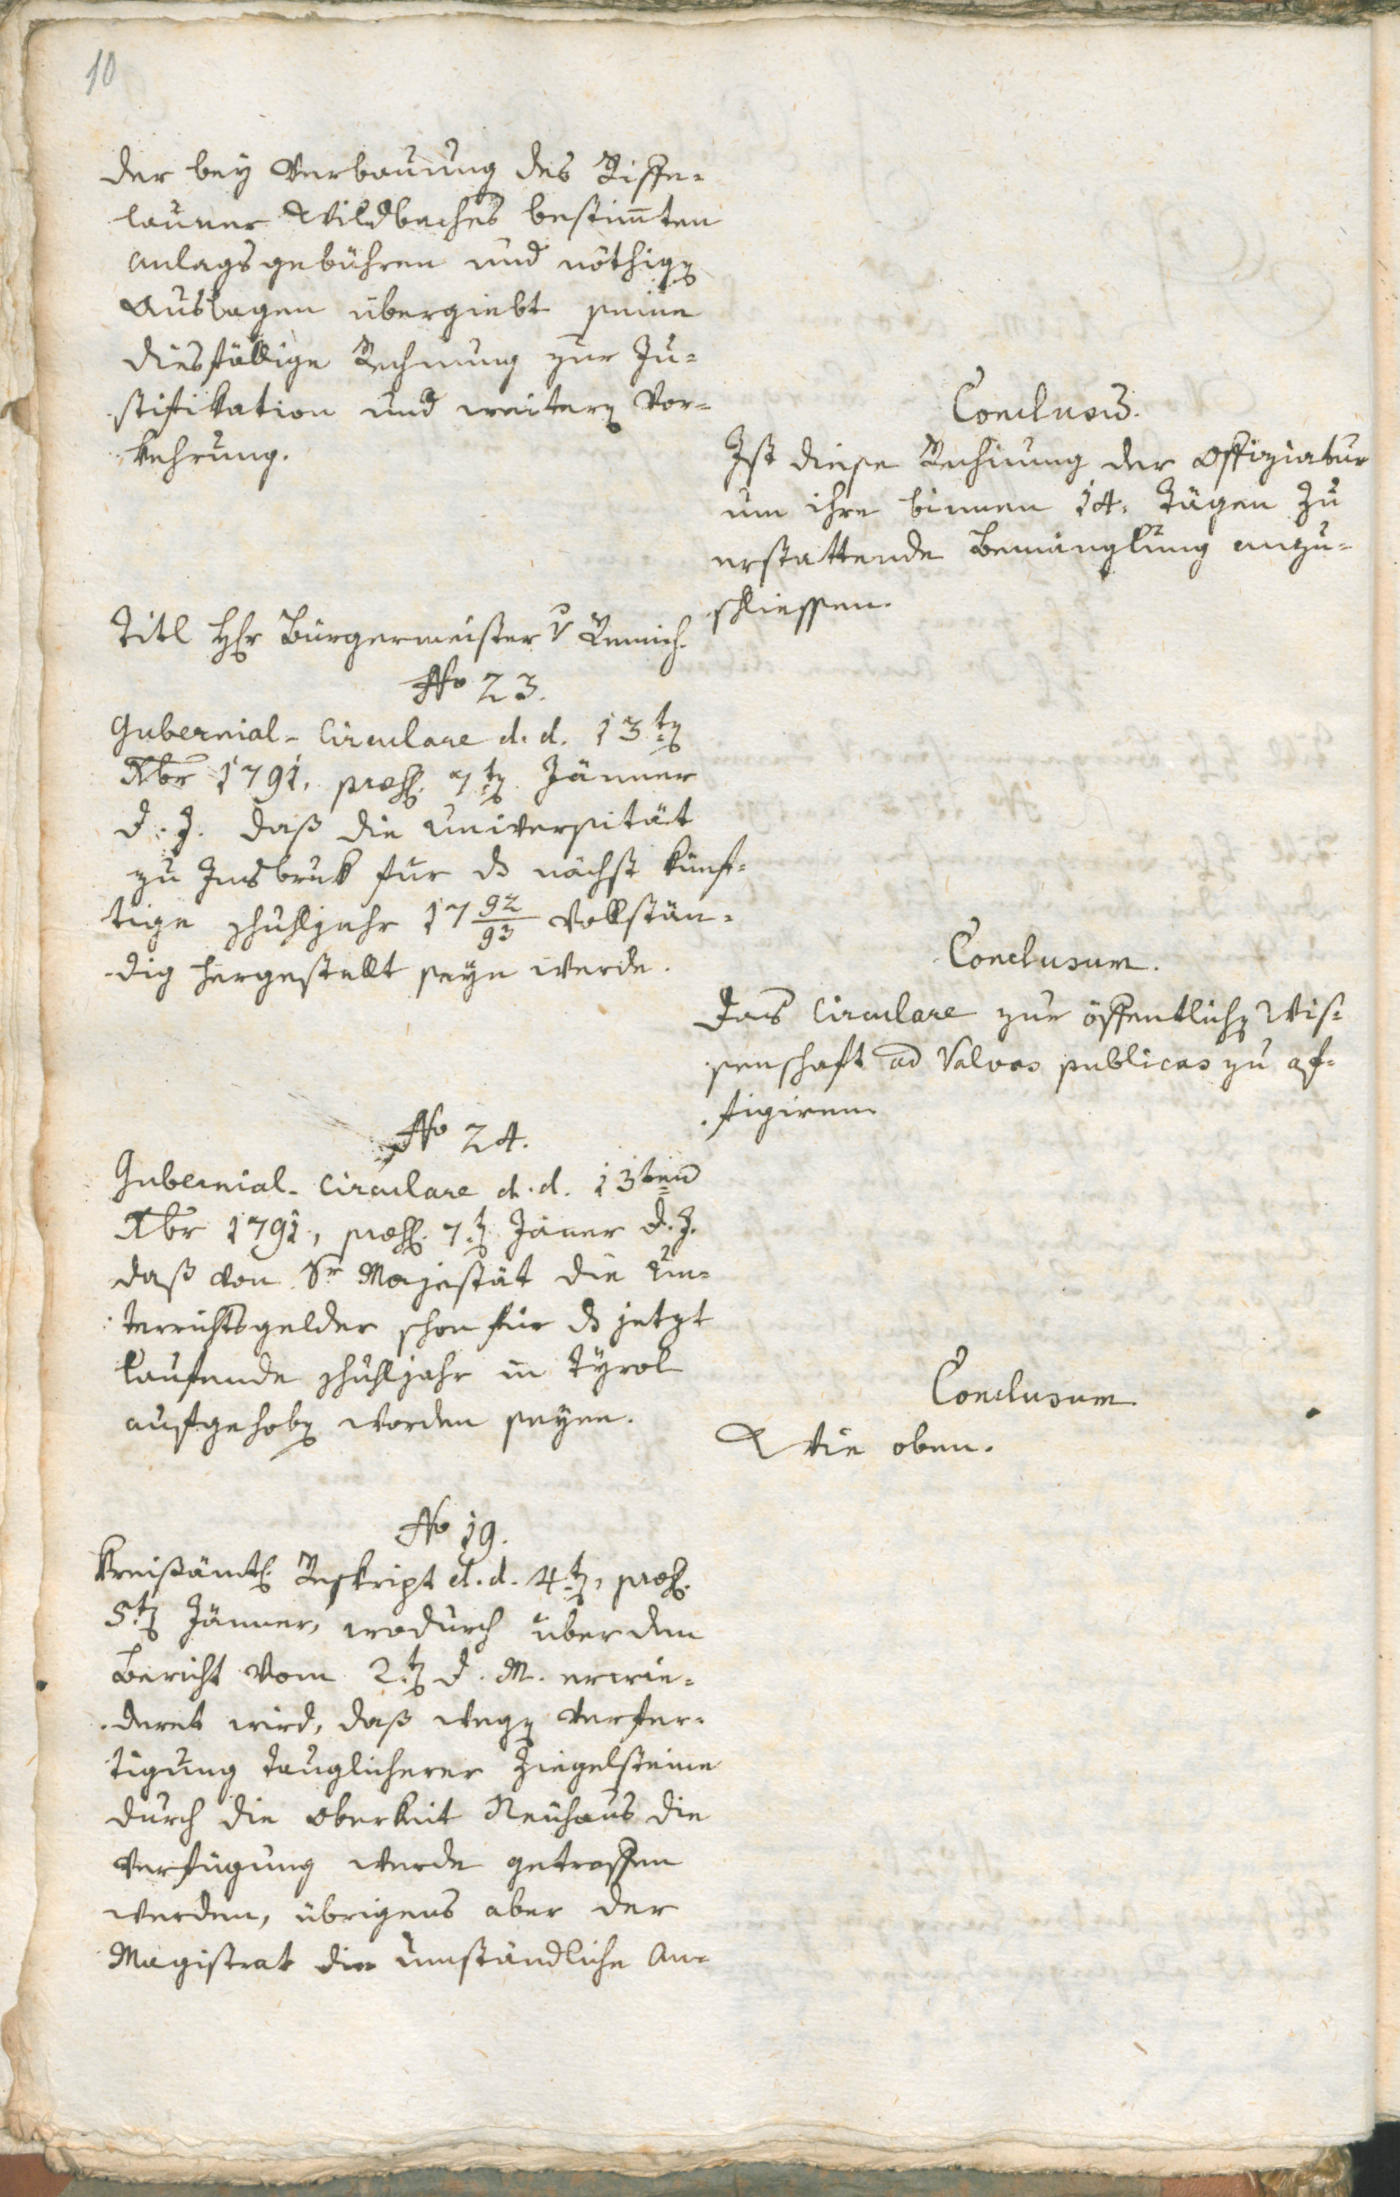 10
der bey Verbauung des Riffe-
launer Wildbaches bestimten
Anlags gebühren und nöthigen
Auslagen übergiebt seine
diesfällige Rechnung zur Ju-
stifikation und weiteren Vor-
kehrung.
Conclusum.
Ist diese Rechnung der Offiziatur
um ihre binnen 14. Tägen zu
erstattende Bemänglung anzu-
schliessen.
Titl Hr Bürgermeister v
No 23.
Gubernial-Circulare d. d. 13ten
Xbr 1791, præs. 7ten Jänner
d. J. daß die Universität
zu Insbruk fur das nächst künf-
tige Schuhljahr 17 92/93 vollstän-
dig hergestellt seyn werde.
Conclusum.
Das Circulare zur öffentlichen Wis-
senschaft ad Valvas publicas zu af-
figiren.
No 24.
Gubernial-Circulare d. d. 13ten
Xbr 1791, præs. 7ten Jäner d. J.
daß von Sr Majestät die Un-
terrichtsgelder schon für das jetzt
laufende Schuhljahr in Tyrol
aufgehoben worden seyen.
Conclusum
Wie oben.
No 19.
Kreißämtl. Reskript d. d. 4ten, præs.
5ten Jänner, wodurch über den
Bericht vom 2ten d. M. erwie-
deret wird, daß wegen Verfer-
tigung tauglicherer Ziegelsteine
durch die Oberkeit Neuhaus die
Verfügung werde getroffen
werden, übrigens aber der
Magistrat die umständliche An-